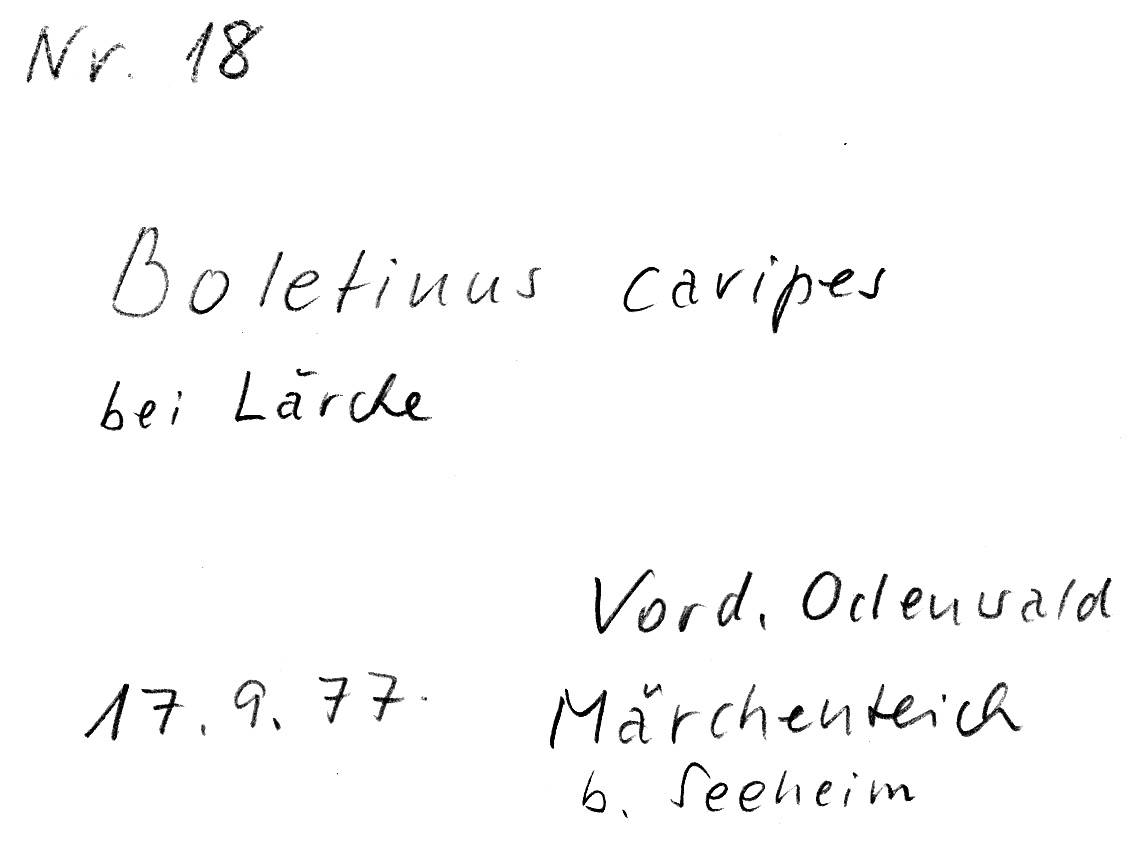 Nr. 18
Boletinus caripes
bei Lärche
Vord. Odenwald
17.9.77. Märchenteich
b. Seeheim